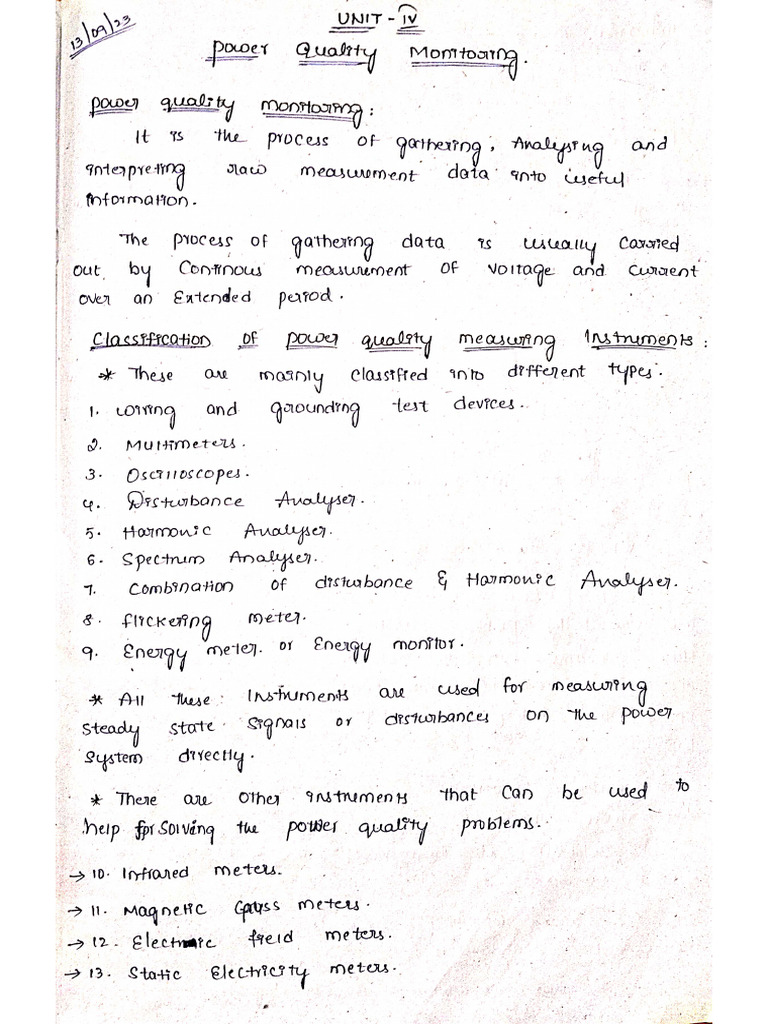 13/09/23
UNIT - IV
Power Quality Monitoring.
Power quality monitoring :
It is the process of gathering, Analysing and
interpreting raw measurement data into useful
information.
The process of gathering data is usually carried
out by continous measurement of voltage and current
over an Extended period.
Classification of power quality measuring Instruments :
* These are mainly classified into different types.
1. wiring and grounding test devices.
2. Multimeters.
3. Oscilloscopes.
4. Disturbance Analyser.
5. Harmonic Analyser.
6. Spectrum Analyser.
7. Combination of disturbance & Harmonic Analyser.
8. flickering meter.
9. Energy meter. or Energy monitor.
* All these Instruments are used for measuring
steady state signals or disturbances on the power
system directly.
* There are other instruments that can be used to
help for solving the power quality problems.
→ 10. Infrared meters.
→ 11. Magnetic Gauss meters.
→ 12. Electric field meters.
→ 13. Static Electricity meters.